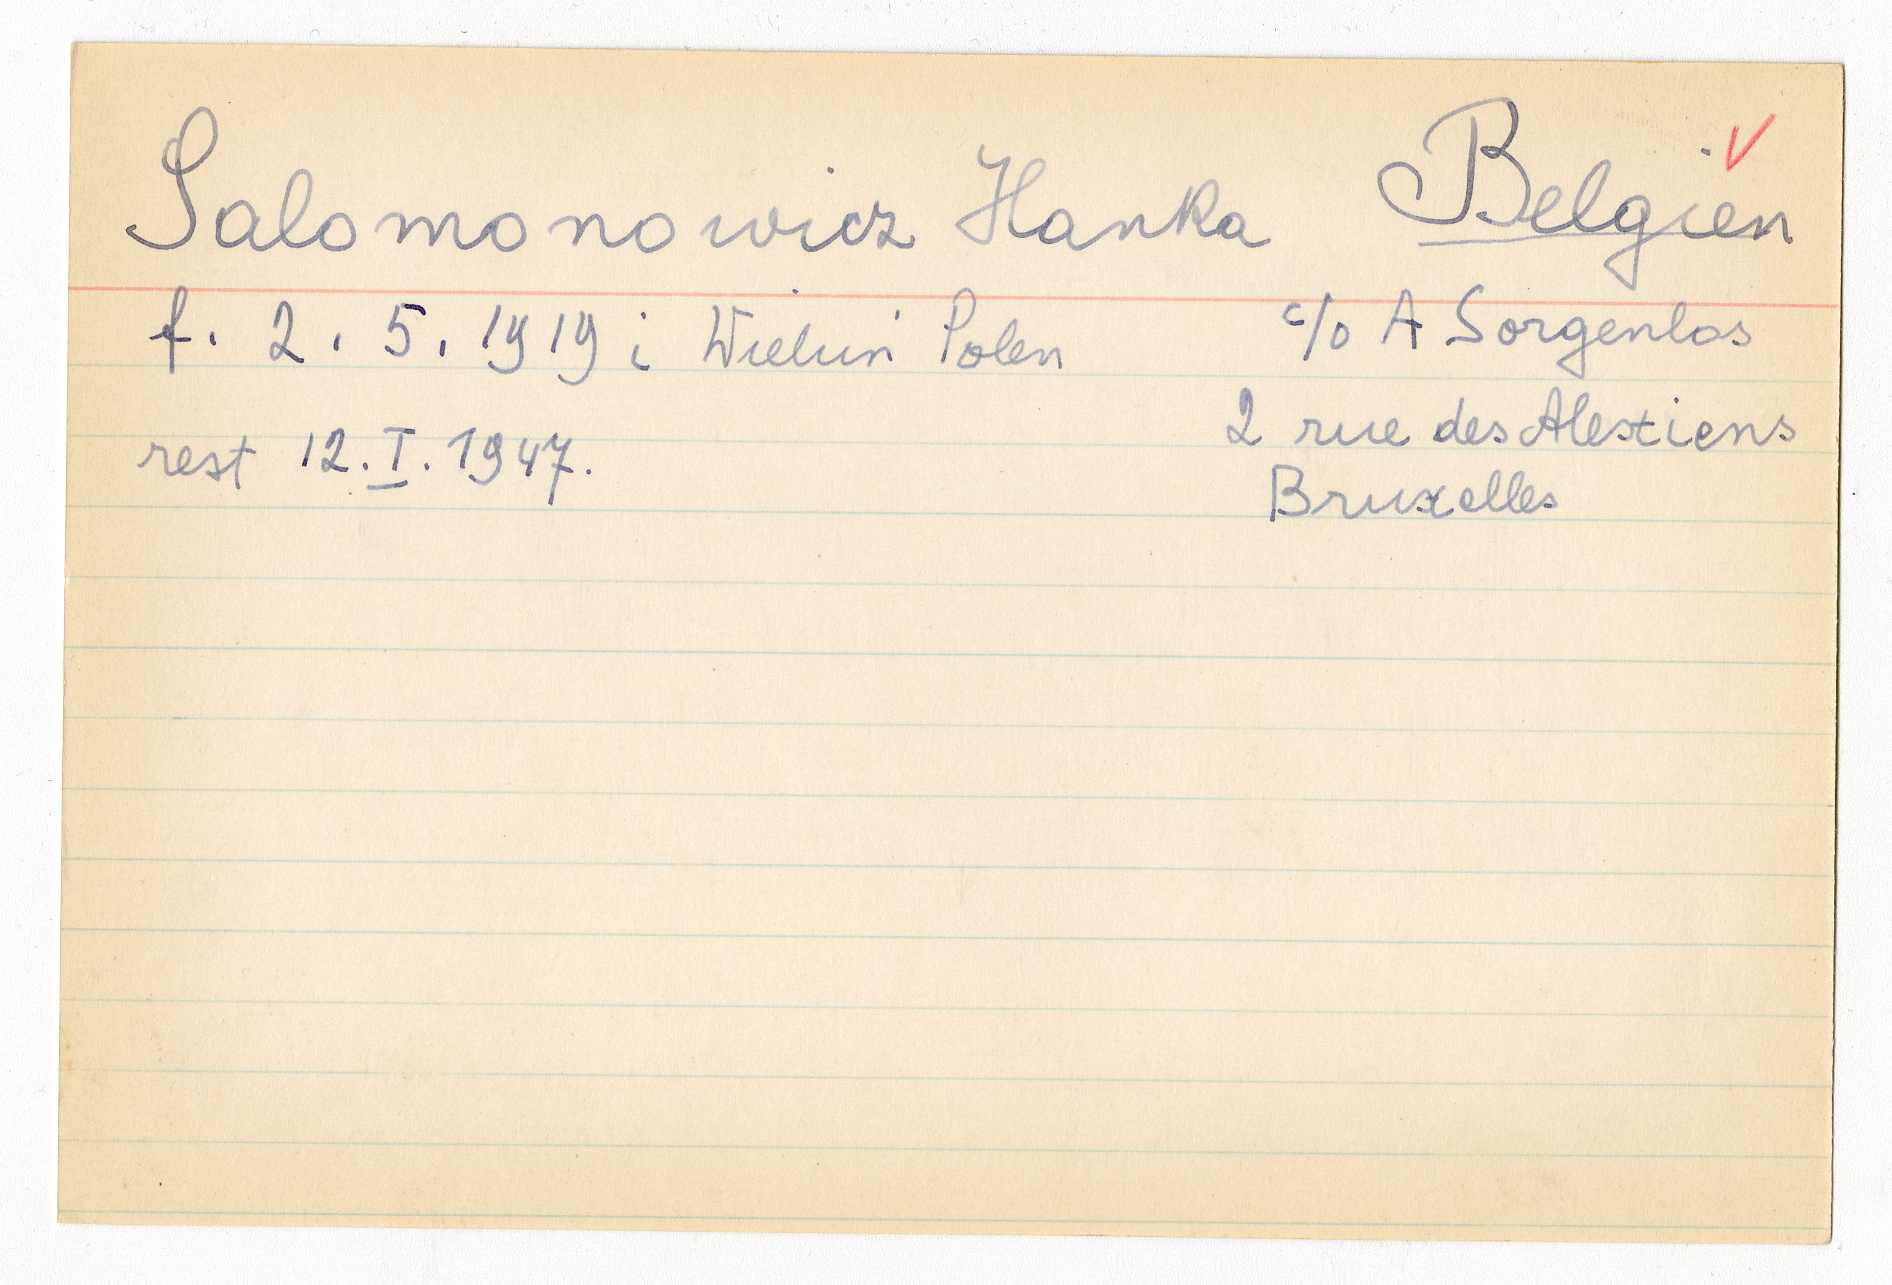 Salomonowicz Hanka Belgien
f. 2. 5. 1919 i Wieluń Polen
c/o A Sorgenlos
rest 12. I. 1947.
2 rue des Alextiens
Bruxelles